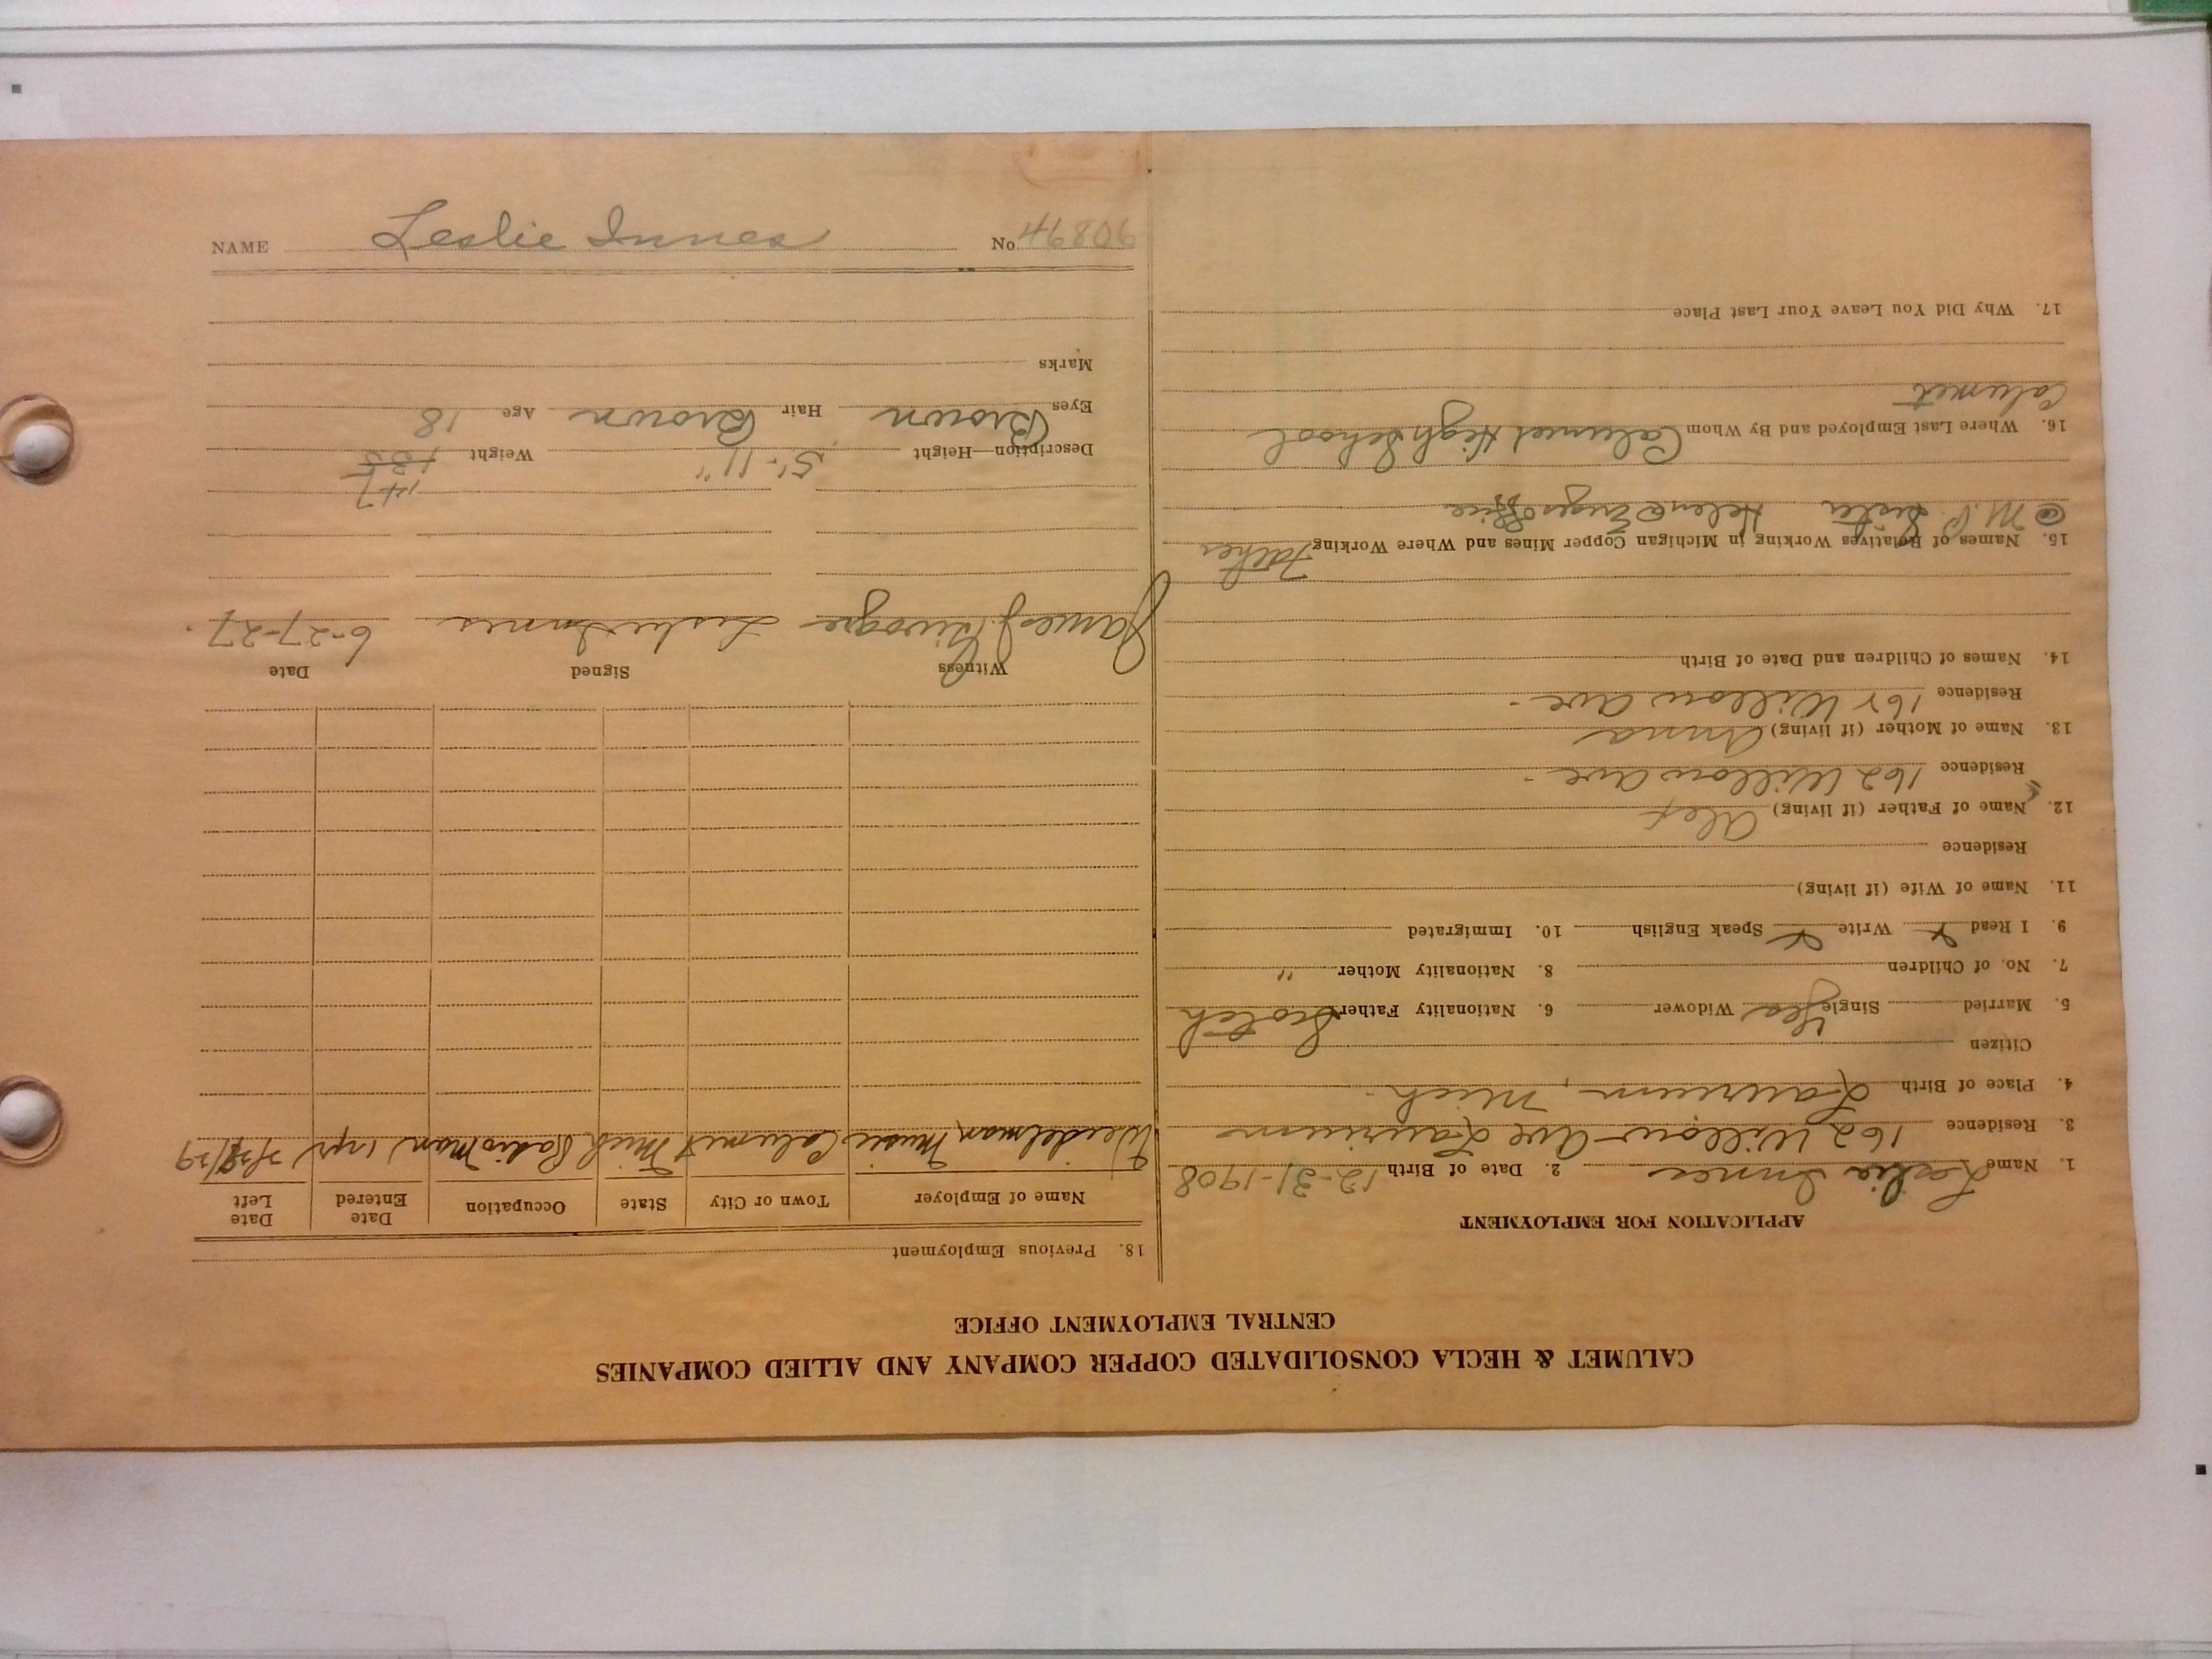 CALUMET & HECLA CONSOLIDATED COPPER COMPANY AND ALLIED COMPANIES
CENTRAL EMPLOYMENT OFFICE
APPLICATION FOR EMPLOYMENT
1. Name Leslie Innes 2. Date of Birth 12-31-1908
3. Residence 162 Willow Ave Laurium
4. Place of Birth Laurium, Mich.
Citizen
5. Married Single Yes Widower 6. Nationality Father Scotch
7. No. of Children 8. Nationality Mother "
9. I Read Write Speak English 10. Immigrated
11. Name of Wife (if living)
Residence
12. Name of Father (if living) Alex
Residence 162 Willow Ave.
13. Name of Mother (if living) Anna
Residence 162 Willow Ave.
14. Names of Children and Date of Birth
15. Names of Relatives Working in Michigan Copper Mines and Where Working Father
@ M. Sister Helen @ Office
16. Where Last Employed and By Whom Calumet High School
Calumet
17. Why Did You Leave Your Last Place
18. Previous Employment
Name of Employer Town or City State Occupation Date Entered Date Left
Music Calumet Mich Radio Man 1 yr
Witness Signed Date
James J. Leslie Innes 6-27-27.
147
Description—Height 5'-11" Weight 135
Eyes Brown Hair Brown Age 18
Marks
NAME Leslie Innes No. 46806